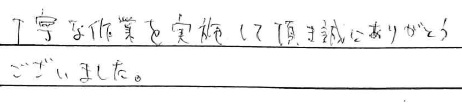 丁寧な作業を実施して頂き誠にありがとう
ございました。